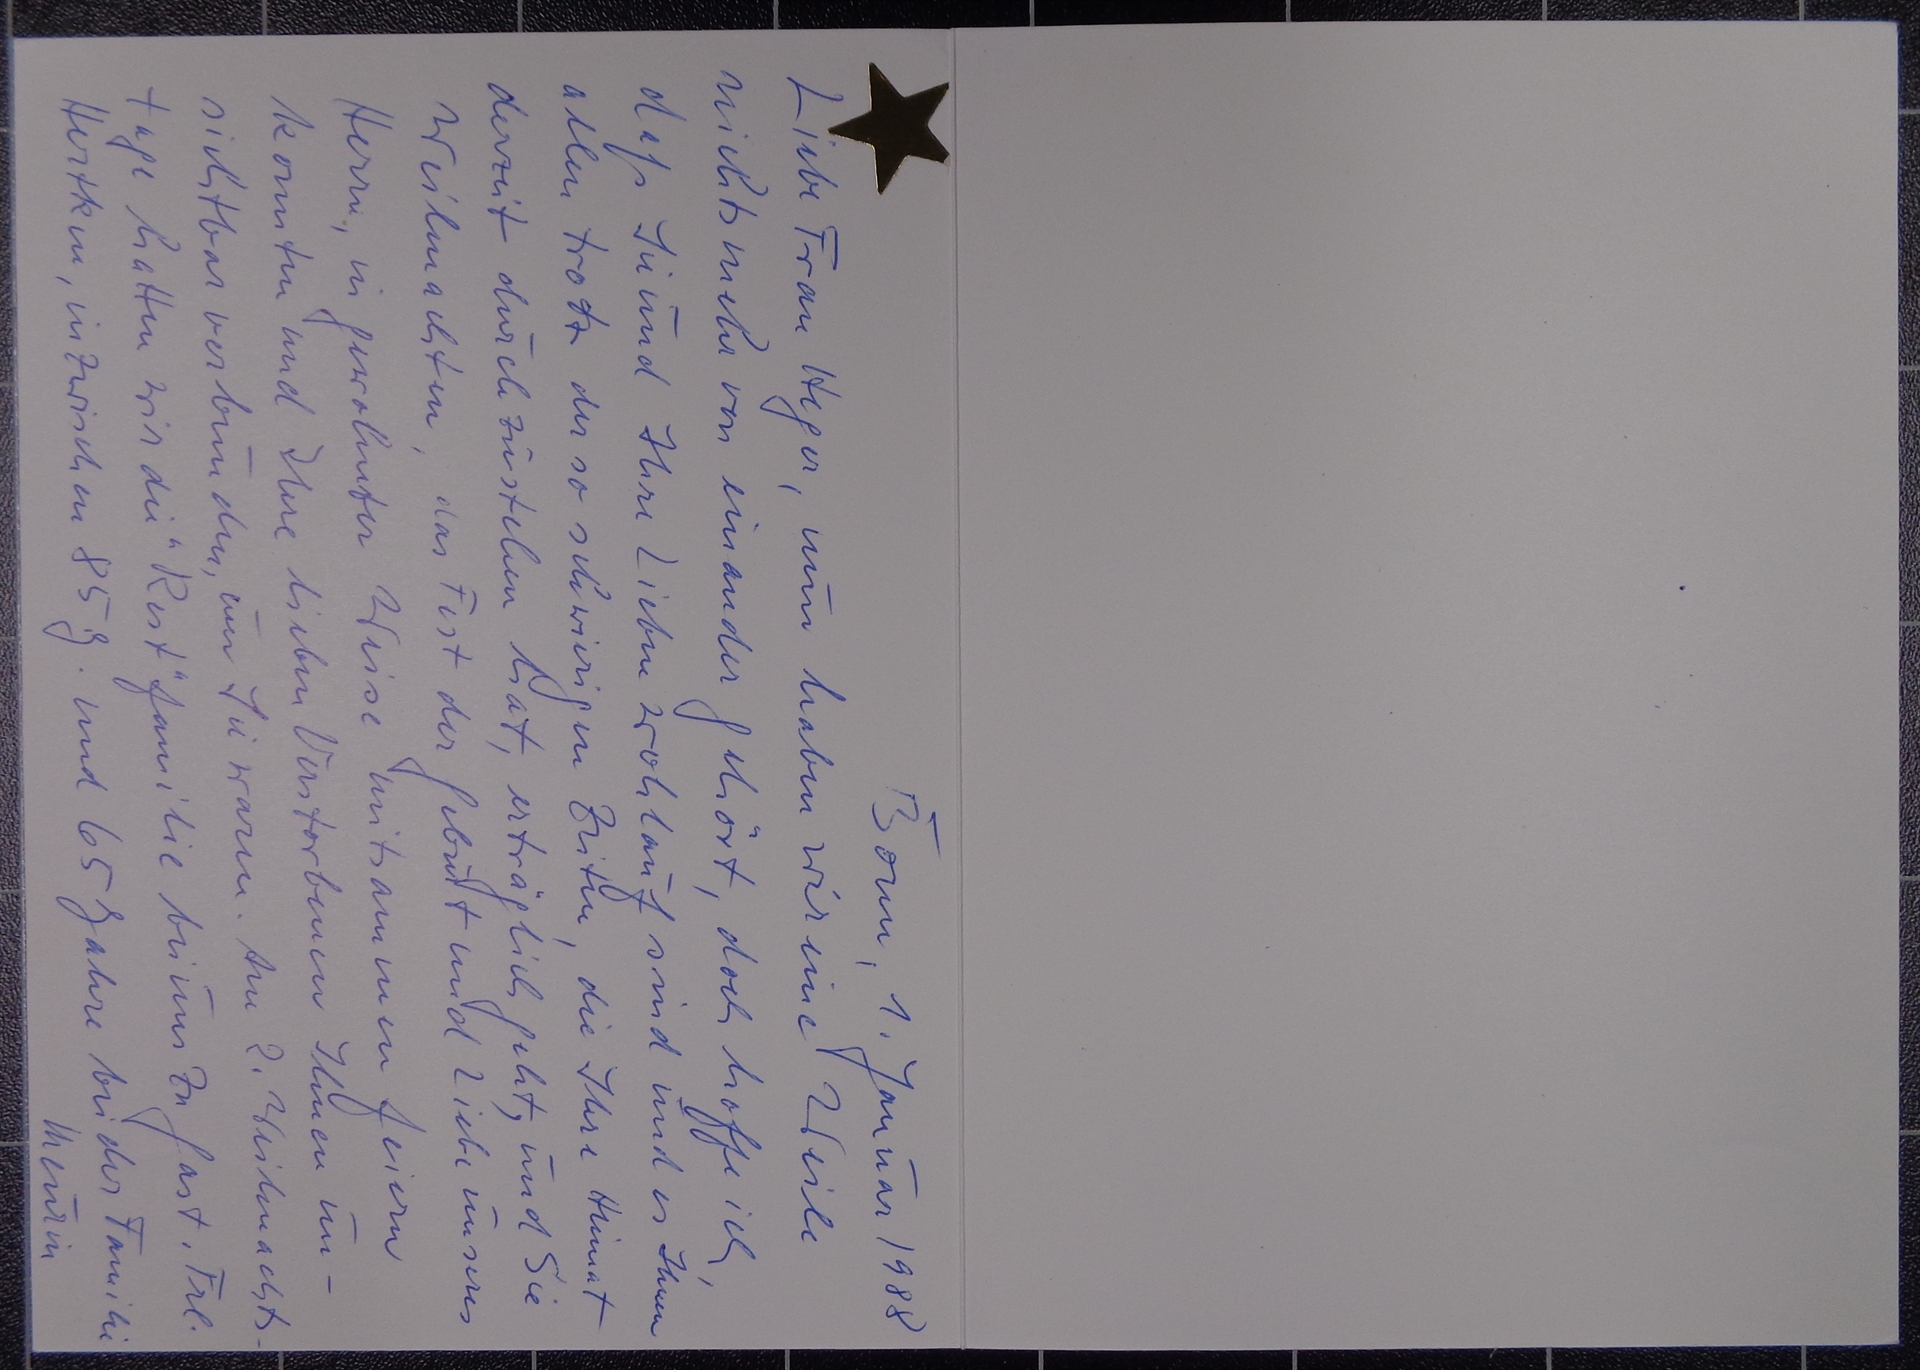 Bonn, 1. Januar 1988
Liebe Frau Heger, nun haben wir eine Weile
nichts mehr von einander gehört, doch hoffe ich,
daß Sie und Ihre Lieben wohlauf sind und es Ihnen
allen trotz der so schwierigen Zeiten, die Ihre Heimat
derzeit durchzustehen hat, erträglich geht, und Sie
Weihnachten, das Fest der Geburt und Liebe unseres
Herrn, in gewohnter Weise mitsammen feiern
konnten und Ihre lieben Verstorbenen Ihnen un-
sichtbar verbunden, um Sie waren. Am 2. Weihnachts-
tage hatten wir die "Rest" familie bei uns zu Gast. Frl.
Hertken, inzwischen 85 j. und 65 Jahre bei der Familie